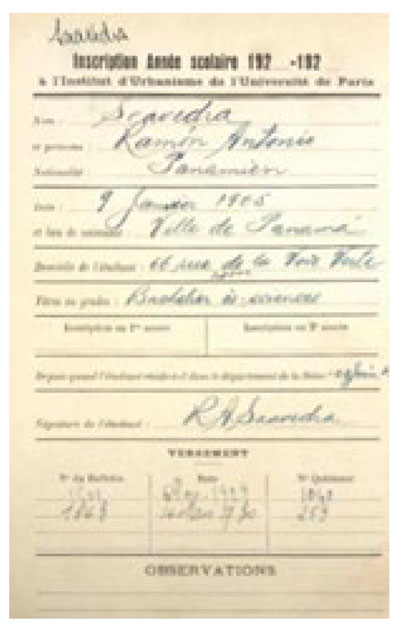 Saavedra
Inscription Année scolaire 192 -192
à l'Institut d'Urbanisme de l'Université de Paris
Nom : Saavedra
et prénoms : Ramón Antonio
Nationalité : Panamien
Date : 9 Janvier 1905
et lieu de naissance : Ville de Panamá
Domicile de l'étudiant : 66 rue de la Voie Verte
Titres ou grades : Bachelier ès-sciences
Inscription en 1re année
Inscription en 2e année
Depuis quand l'étudiant réside-t-il dans le département de la Seine
Signature de l'étudiant : R A Saavedra
VERSEMENT
N° du Bulletin Date N° Quittance
1929
253
OBSERVATIONS